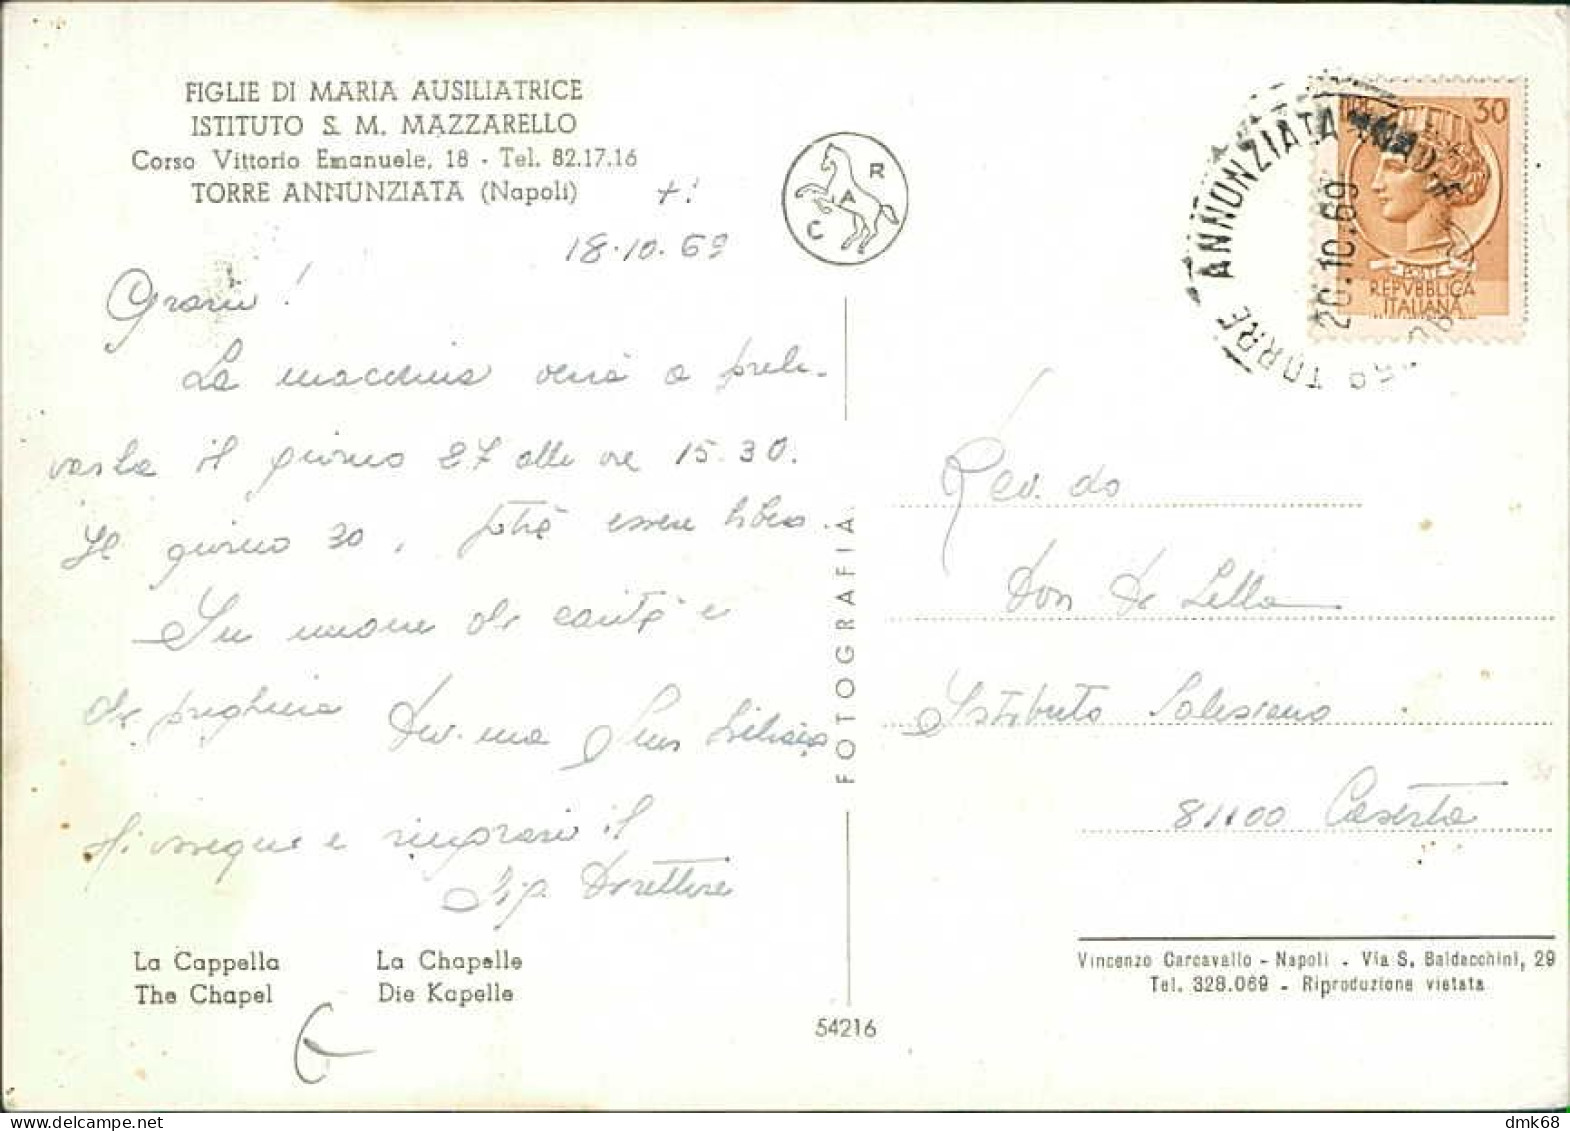 FIGLIE DI MARIA AUSILIATRICE
ISTITUTO S. M. MAZZARELLO
Corso Vittorio Emanuele, 18 - Tel. 82.17.16
TORRE ANNUNZIATA (Napoli)
18.10.69
Grazie!
La macchina verrà a prele-
varla il giorno 27 alle ore 15.30.
Il giorno 30, potrà essere libera.
In unione di carità e
di preghiera Dev.ma Suor
Mi ossequi e ringrazi il
Sig. Direttore
La Cappella
The Chapel
La Chapelle
Die Kapelle
C A R
FOTOGRAFIA
54216
TORRE ANNUNZIATA
20.10.69
30
POSTE
REPVBBLICA
ITALIANA
Rev. do
Don De Lella
Istituto Salesiano
81100 Caserta
Vincenzo Carcavallo - Napoli - Via S. Baldacchini, 29
Tel. 328.069 - Riproduzione vietata
dmk68